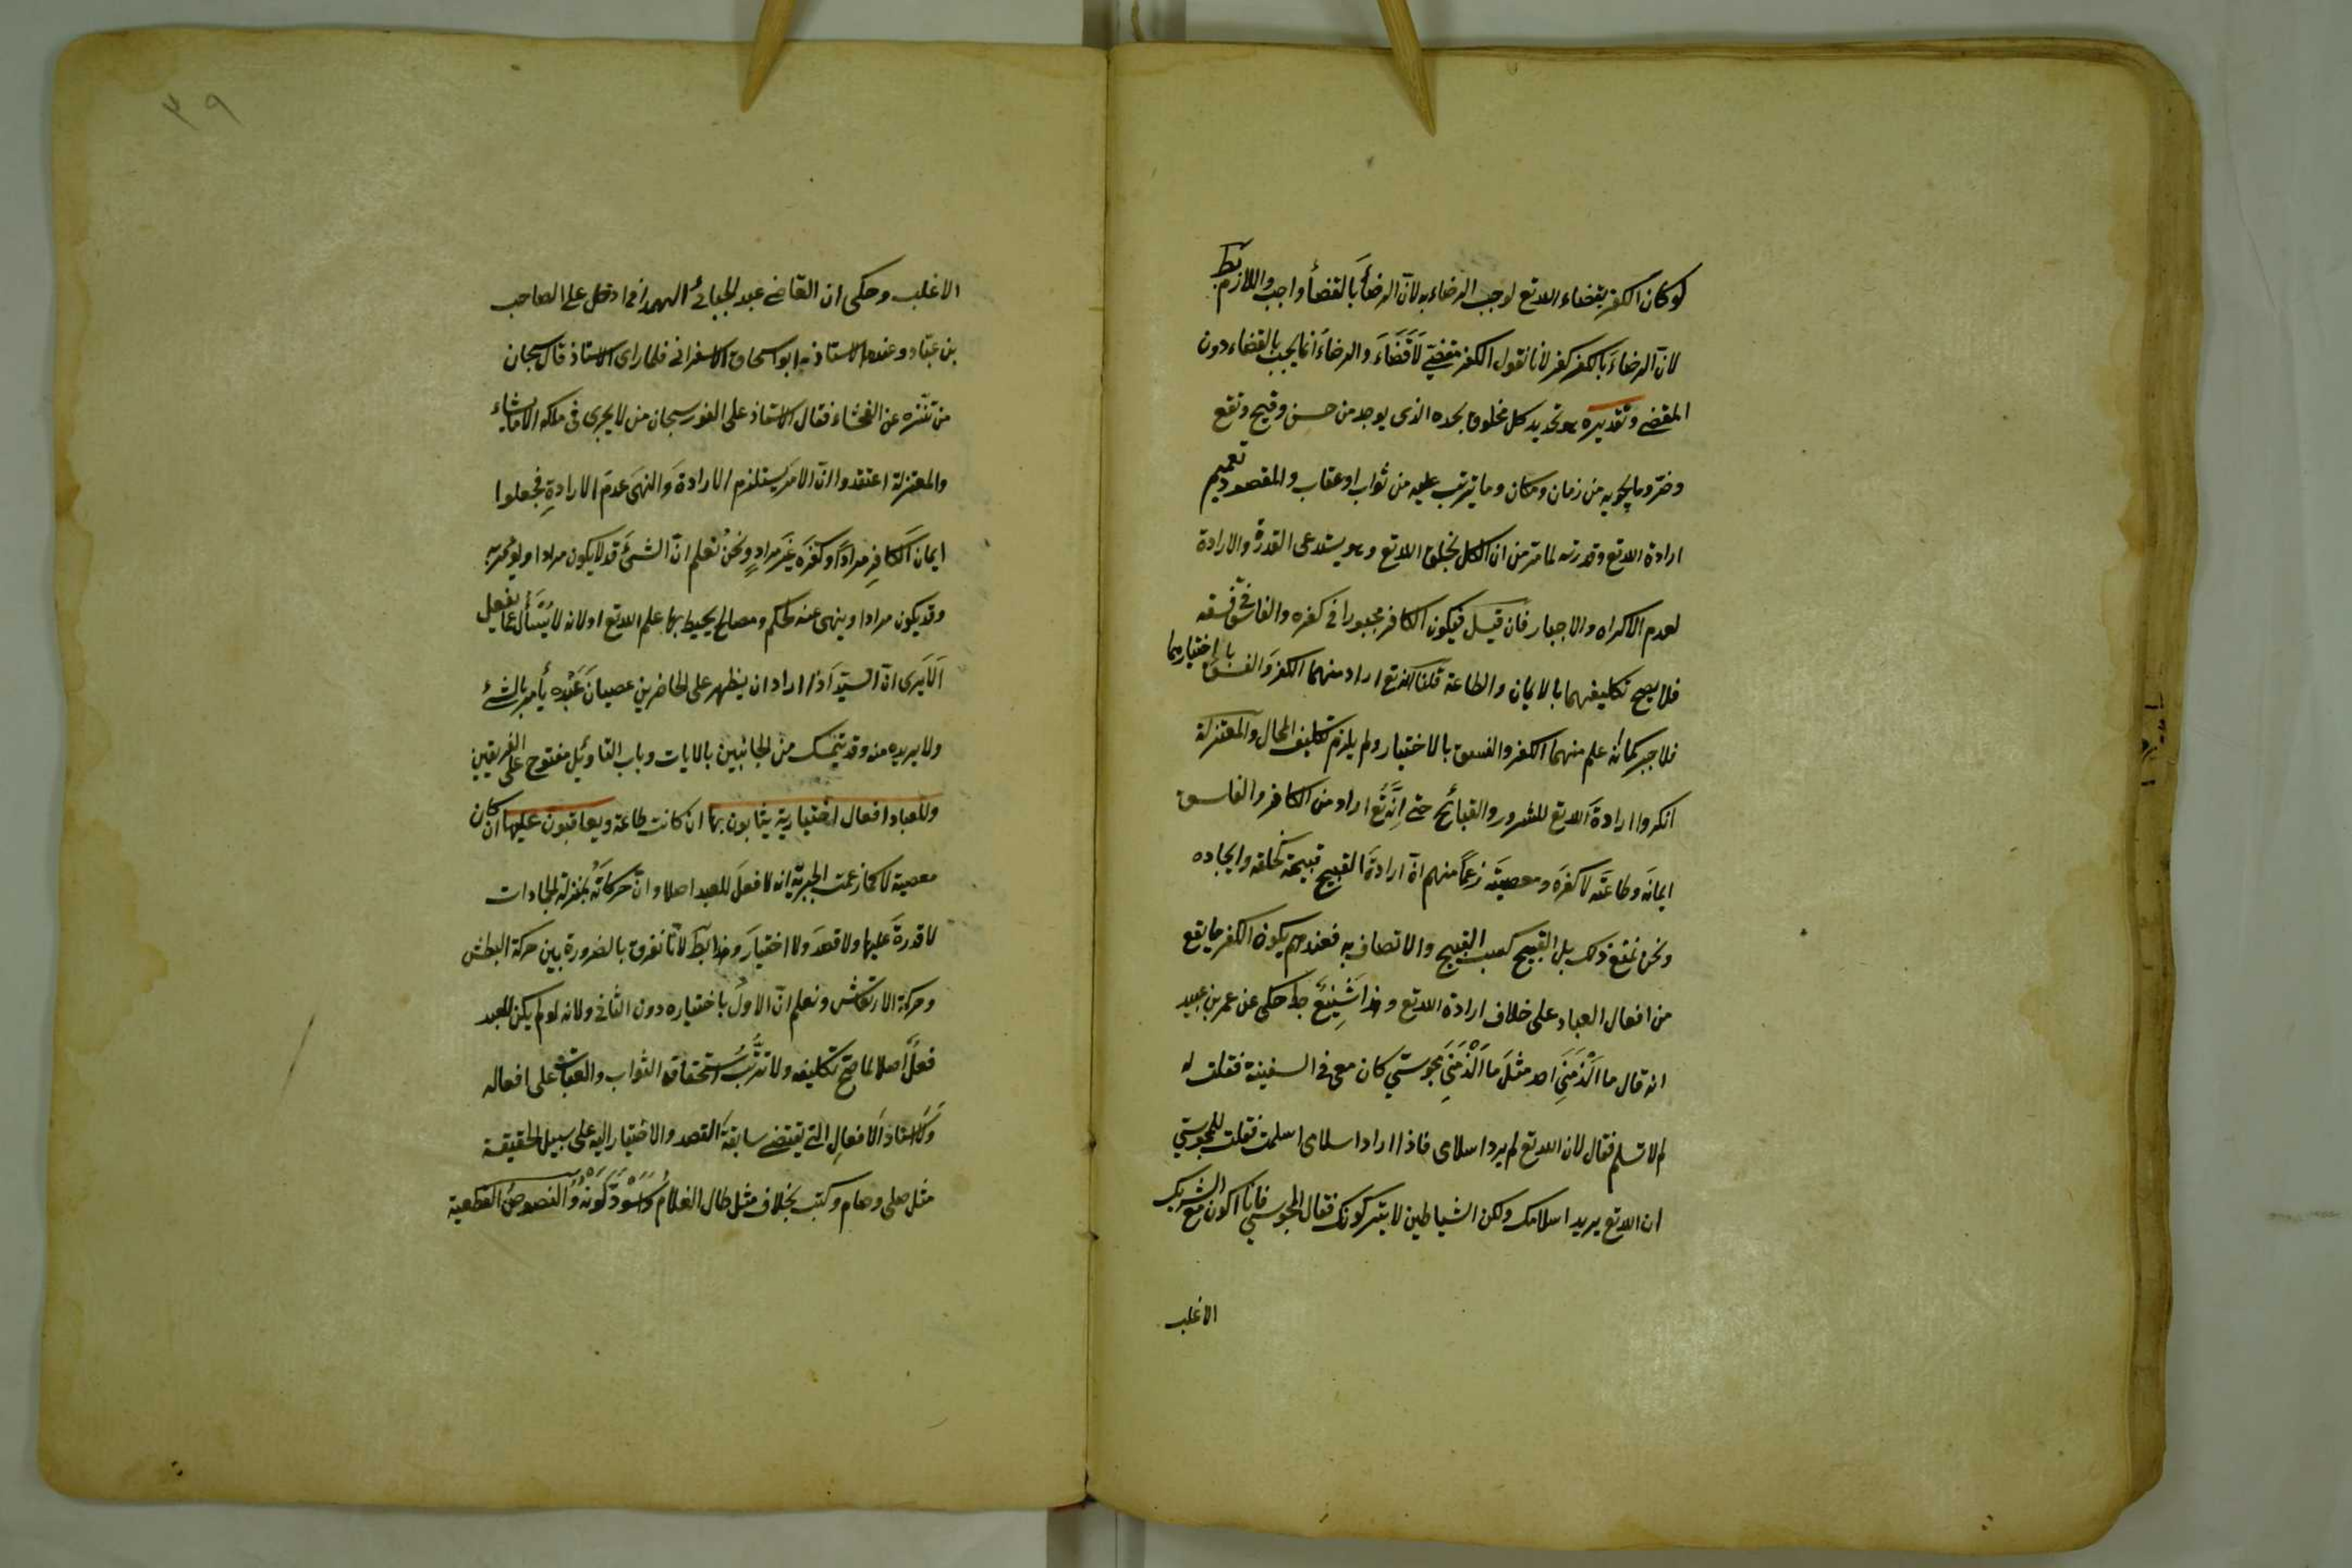 لو كان الكفر بقضاء الله تع لوجب الرضاء به لان الرضأ بالقضأ واجب واللازم بط
لان الرضاء بالكفر كفر لانا نقول الكفر مقضى لا قضاء والرضاء انما يجب بالقضاء دون
المقضى وتقديره هو تحديد كل مخلوق بحده الذى يوجد من حسن وقبح ونفع
وضر وما يحويه من زمان ومكان وما يترتب عليه من ثواب او عقاب والمقصود تعميم
ارادة الله تع وقدرته لما مر من ان الكل بخلق الله تع وهو يستدعى القدرة والارادة
لعدم الاكراه والاجبار فان قيل فيكون الكافر مجبورا فى كفره والفاسق فى فسقه
فلا يصح تكليفهما بالايمان والطاعة قلنا انه تع اراد منهما الكفر والفسق باختيارهما
فلا جبر كما انه علم منهما الكفر والفسق بالاختيار ولم يلزم تكليف المحال والمعتزلة
انكروا ارادة الله تع للشرور والقبائح حتى انه تع اراد من الكافر والفاسق
ايمانه وطاعته لا كفره ومعصيته زعما منهم ان ارادة القبيح قبيحة كخلقه وايجاده
ونحن نمنع ذلك بل القبيح كسب القبيح والاتصاف به فعندهم يكون اكثر ما يقع
من افعال العباد على خلاف ارادة الله تع وهذا شنيع جدا حكى عن عمر بن عبيد
انه قال ما الزمنى احد مثل ما الزمنى مجوسى كان معى فى السفينة فقلت له
لم لا تسلم فقال لان الله تع لم يرد اسلامى فاذا اراد اسلامى اسلمت فقلت للمجوسى
ان الله تع يريد اسلامك ولكن الشياطين لا يتركونك فقال المجوسى فانا اكون مع الشريك
الاغلب
٣٩
الاغلب وحكى ان القاضى عبد الجبائى الهمدانى دخل على الصاحب
بن عباد وعنده الاستاذ ابو اسحاق الاسفرانى فلما راى الاستاذ قال سبحان
من تنزه عن الفحشاء فقال الاستاذ على الفور سبحان من لا يجرى فى ملكه الا ما يشاء
والمعتزلة اعتقدوا ان الامر يستلزم الارادة والنهى عدم الارادة فجعلوا
ايمان الكافر مرادا وكفره غير مراد ونحن نعلم ان الشئ قد لا يكون مرادا ويؤمر به
وقد يكون مرادا وينهى عنه لحكم ومصالح يحيط بها علم الله تع او لانه لا يسأل عما يفعل
الا يرى ان السيد اذا اراد ان يظهر على الحاضرين عصيان عبده يأمر بالشئ
ولا يريده منه وقد يتمسك من الجانبين بالايات وباب التاويل مفتوح على الفريقين
وللعباد افعال اختيارية يثابون بها ان كانت طاعة ويعاقبون عليها ان كان
معصية لا كما زعمت الجبرية انه لا فعل للعبد اصلا وان حركاته بمنزلة الجمادات
لا قدرة عليها ولا قصد ولا اختيار وهذا بط لانا نفرق بالضرورة بين حركة البطش
وحركة الارتعاش ونعلم ان الاول باختياره دون الثانى ولانه لو لم يكن للعبد
فعل اصلا لما صح تكليفه ولا ترتب استحقاق الثواب والعقاب على افعاله
ولا اسناد الافعال التى يقتضى سابقة القصد والاختيار اليه على سبيل الحقيقة
مثل صلى وصام وكتب بخلاف مثل طال الغلام واسود لونه والنصوص القطعية